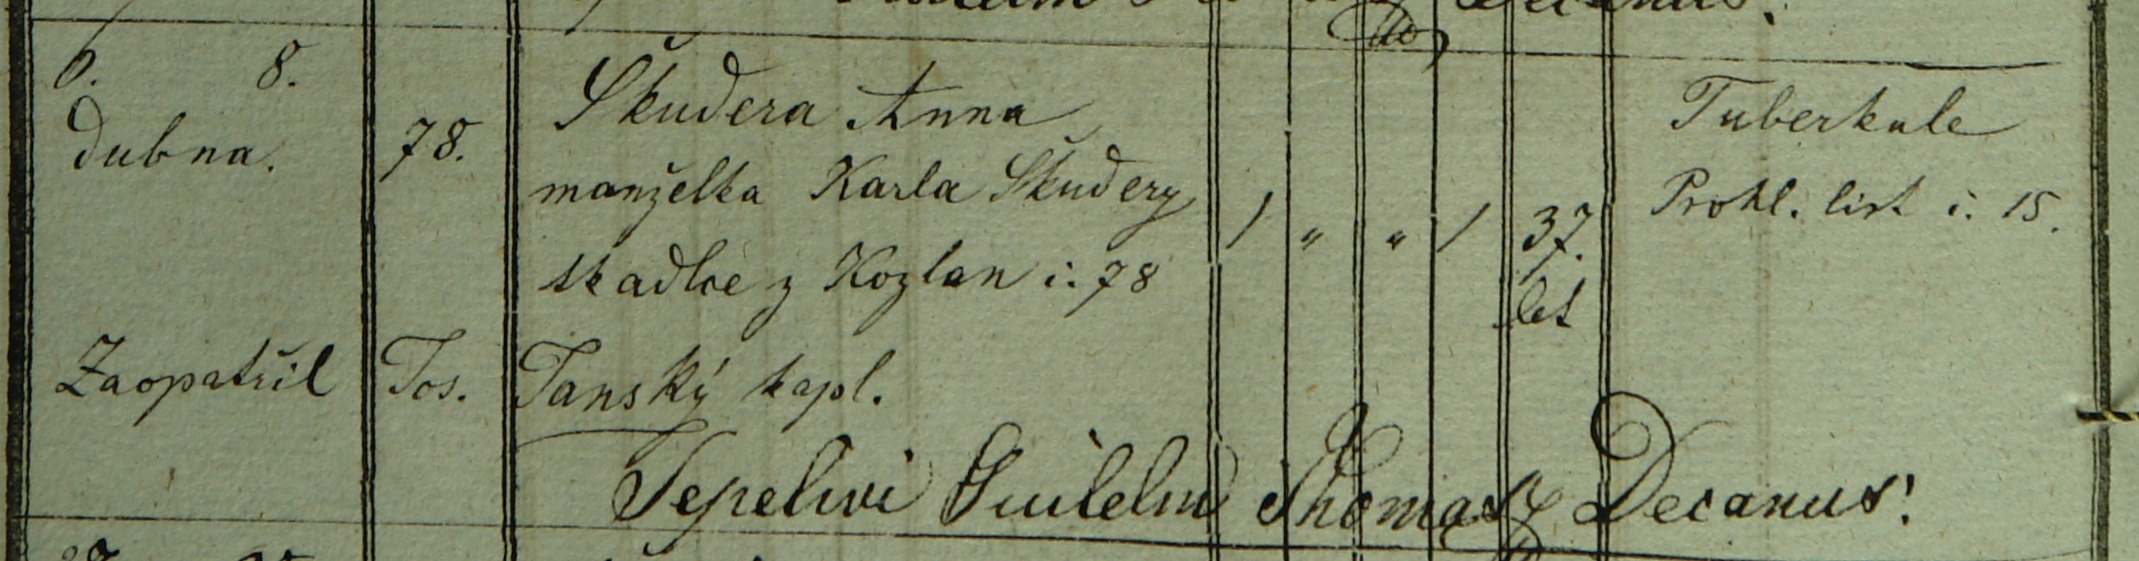 6. 8.
dubna. 78.
Škudera Anna
manželka Karla Škudery
tkadlce z Kozlan č. 78
1 " " 1 37.
let
Tuberkule
Prohl. list č. 15.
Zaopatřil Jos. Janský kapl.
Sepelivi Guilelm Thomas Decanus.